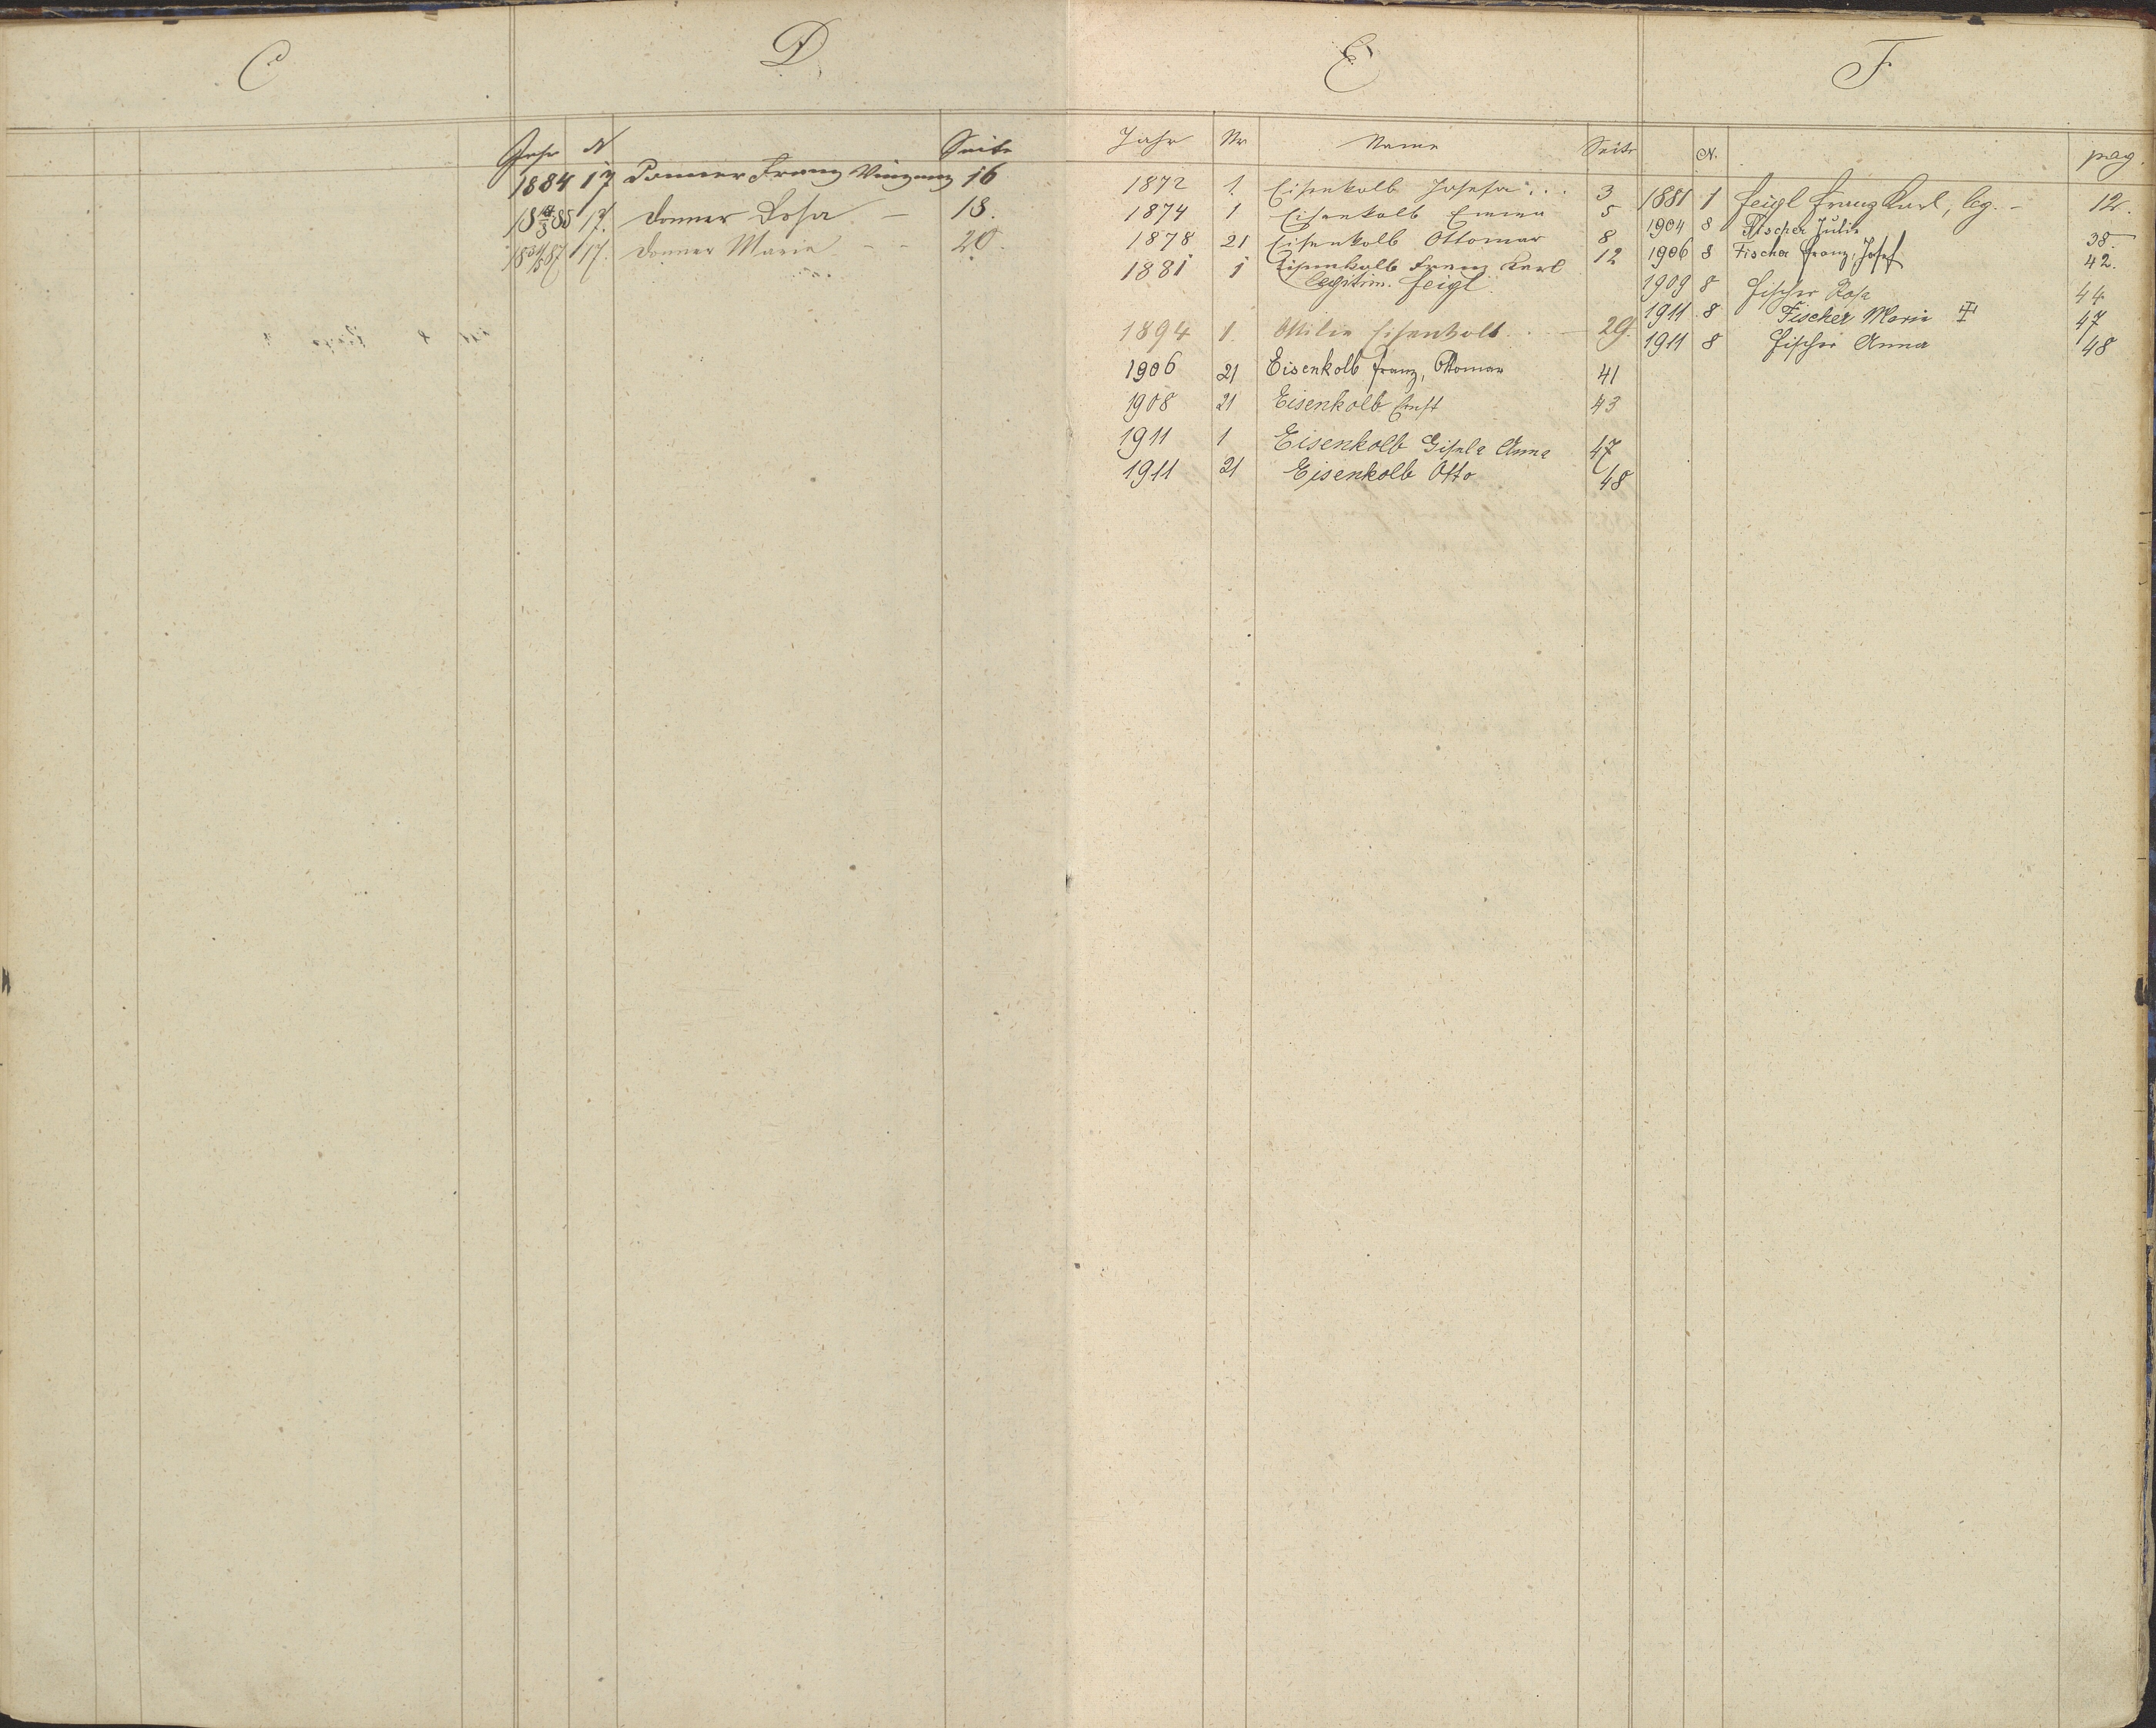 C
D
Jahr N Seite
1884 17 Donner Franz Vinzenz 16
18 4/3 85 17. Donner Rosa — 18.
18 87 17. Donner Marie - - 20.
E
Jahr Nr Name Seite
1872 1. Eisenkolb Josefa . . . 3
1874 1 Eisenkolb Emma 5
1878 21 Eisenkolb Ottomar 8
1881 1 Eisenkolb Franz Karl 12
legitim. Feigl
1894 1. Ottilie Eisenkolb . — 29.
1906 21 Eisenkolb Franz, Ottomar 41
1908 21 Eisenkolb Ernst 43
1911 1 Eisenkolb Gisela Anna 47
1911 21 Eisenkolb Otto 48
F
N. pag
1881 1 Feigl Franz Karl, leg. — 12.
1904 8 Fischer Julie 38.
1906 8 Fischer Franz, Josef 42.
1909 8 Fischer Rosa 44
1911 8 Fischer Marie 47
1911 8 Fischer Anna 48